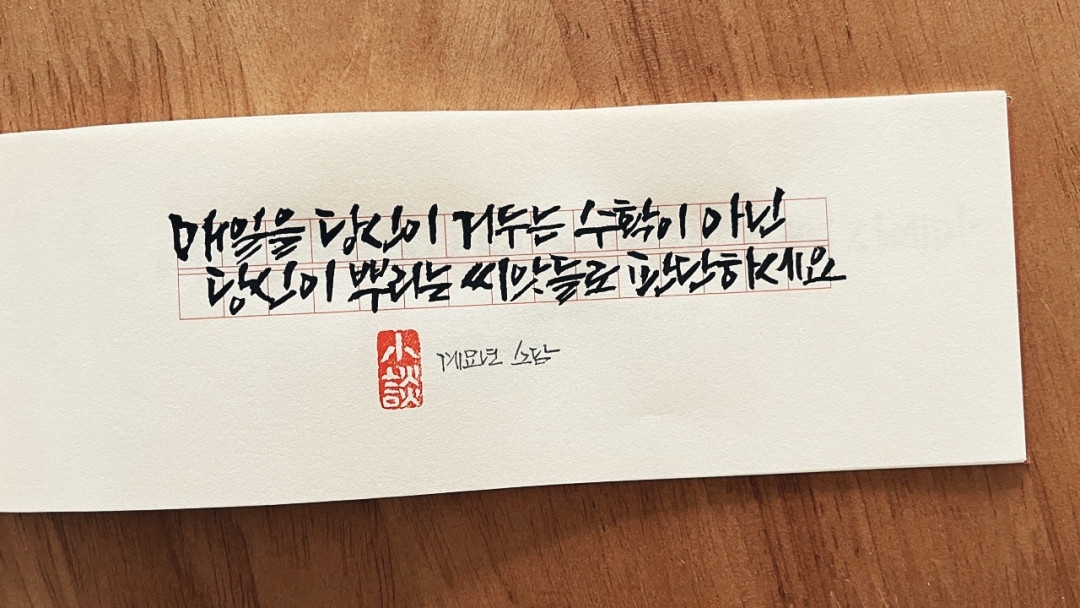 매일을 당신이 거두는 수확이 아닌
당신이 뿌리는 씨앗들로 판단하세요
小談
계묘년 소담